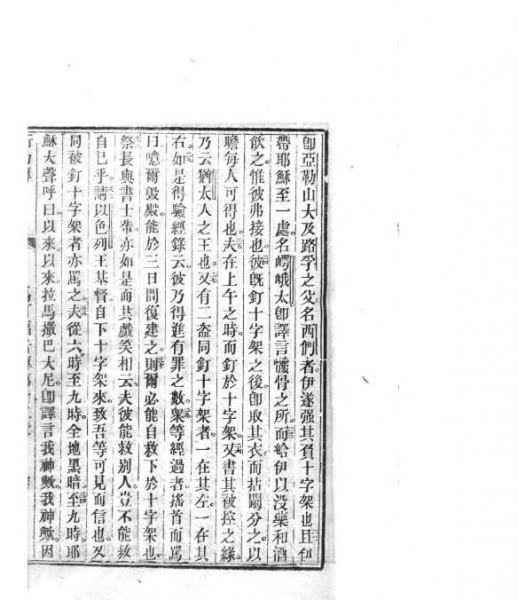 卽亞勒山大及路孚之父名西們者伊遂强其負十字架也且伊
帶耶穌至一處名嶀峨太卽譯言髏骨之所而給伊以没藥和酒
飲之惟彼弗接也彼旣釘十字架之後卽取其衣而拈鬮分之以
瞻每人可得也夫在上午之時而釘於十字架又書其被控之緣
乃云猶太人之王也又有二盜同釘十字架者一在其左一在其
右如是得驗經錄云彼乃得進有罪之數衆等經過者搖首而罵
曰噫爾毀殿能於三日間復建之則爾必能自救下於十字架也
祭長與書士輩亦如是而其戲笑相云夫彼能救别人豈不能救
自己乎請以色列王基督自下十字架來致吾等可見而信也又
同被釘十字架者亦罵之夫從六時至九時全地黑暗至九時耶
穌大聲呼曰以來以來拉馬撒巴大尼卽譯言我神歟我神歟因